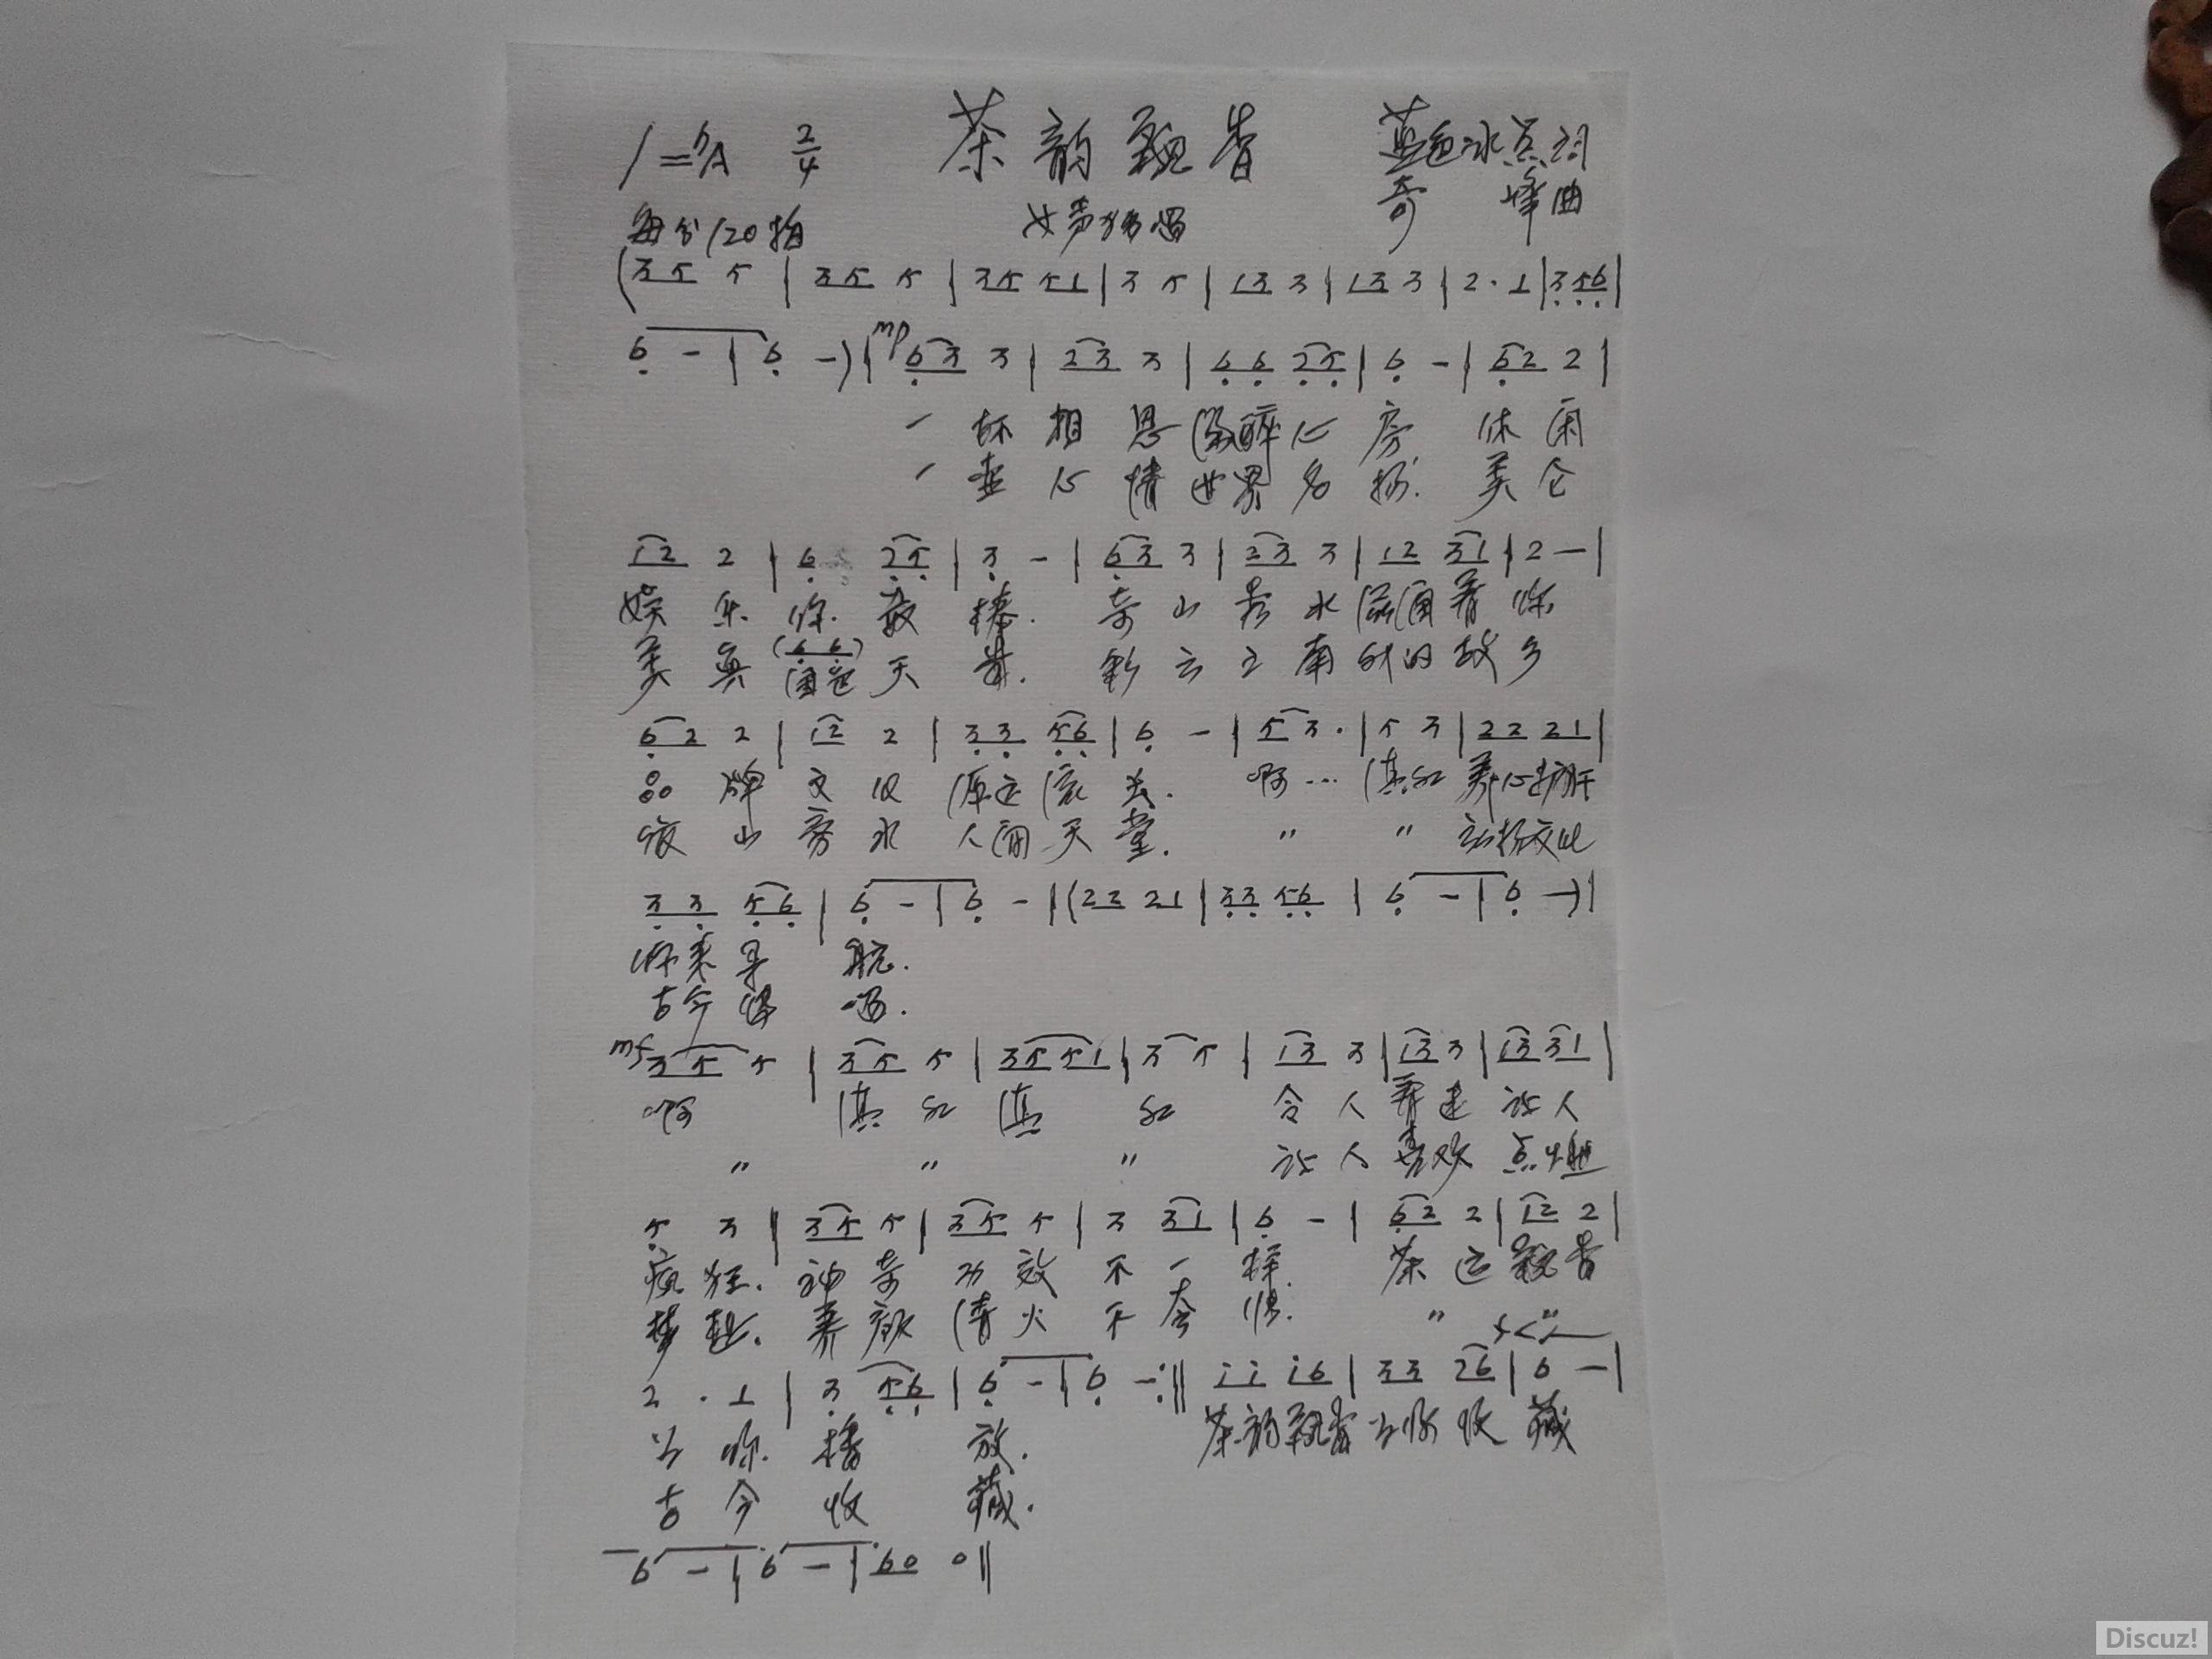 1=bA 2/4 茶韵飘香 蓝色冰点词
奇 峰曲
每分120拍 女声独唱
(35 5 | 35 5 | 35 51 | 3 5 | 13 3 | 13 3 | 2 · 1 | 3 56 |
6 - | 6 -) | mp 63 3 | 23 3 | 66 25 | 6 - | 62 2 |
一 杯 相 思 陶醉心 房 休 闲
一 壶 心 情 世界名 扬. 美 仑
12 2 | 6 25 | 3 - | 63 3 | 23 3 | 12 31 | 2 - |
娱 乐 你 最 棒. 奇 山 秀 水 滋润着 你
美 奂 (6 6) 天 堂. 彩 云 之 南 我的故 乡
62 2 | 12 2 | 33 56 | 6 - | 53 · | 5 3 | 22 21 |
品 牌 文 化 源远流 长. 啊… 滇红 养心护肝
人间天 堂. " "
33 56 | 6 - | 6 - | (22 21 | 33 56 | 6 - | 6 -) |
你来导 航.
古今 唱.
mf 35 5 | 35 5 | 35 51 | 3 5 | 13 3 | 13 3 | 13 31 |
啊 滇 红 滇 红 令 人 让人
" " " 让 人 喜欢 点燃
5 3 | 35 5 | 35 5 | 3 31 | 6 - | 62 2 | 12 2 |
疯 狂. 神 奇 功 效 不 一 样. 茶 运 飘香
梦 想. 养 颜 清 火 不 夸 张. " "
2 · 1 | 3 56 | 6 - | 6 - :‖ i i i6 | 33 26 | 6 - |
为 你 播 放. 茶韵飘香为你收 藏
古 今 收 藏.
6 - | 6 - | 60 0 ‖
Discuz!